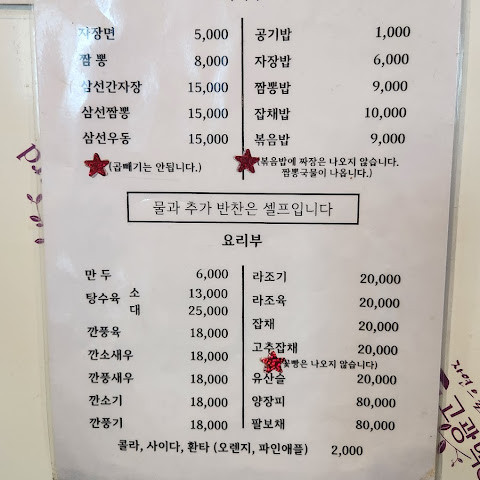 자장면 5,000
짬 뽕 8,000
삼선간자장 15,000
삼선짬뽕 15,000
삼선우동 15,000
(곱빼기는 안됩니다.)
공기밥 1,000
자장밥 6,000
짬뽕밥 9,000
잡채밥 10,000
볶음밥 9,000
(볶음밥에 짜장은 나오지 않습니다.
짬뽕국물이 나옵니다.)
물과 추가 반찬은 셀프입니다
요리부
만 두 6,000
탕수육 소 13,000
대 25,000
깐풍육 18,000
깐소새우 18,000
깐풍새우 18,000
깐소기 18,000
깐풍기 18,000
라조기 20,000
라조육 20,000
잡채 20,000
고추잡채 20,000
(꽃빵은 나오지 않습니다)
유산슬 20,000
양장피 80,000
팔보채 80,000
콜라, 사이다, 환타 (오렌지, 파인애플) 2,000